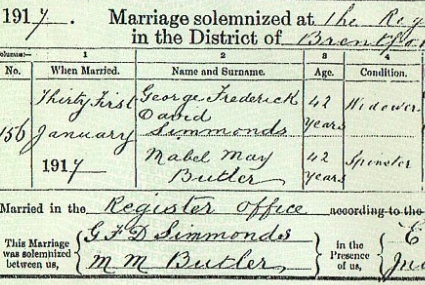 1917. Marriage solemnized at The Reg
in the District of Brentfo
Columns:— 1 2 3 4
No. When Married. Name and Surname. Age. Condition.
156 Thirty First January 1917 George Frederick David Simmonds 42 Years Widower
Mabel May Butler 42 Years Spinster
Married in the Register Office according to the
This Marriage was solemnized between us, G F D Simmonds M M Butler in the Presence of us,